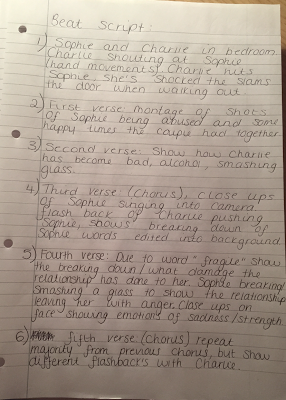 Beat Script:
1) Sophie and Charlie in bedroom
Charlie shouting at Sophie
(hand movements) Charlie hits
Sophie, she's shocked he slams
the door when walking out.
2) First verse montage of shots
of Sophie being abused and some
happy times the couple had together
3) Second verse: Show how Charlie
has become bad, alcohol, smashing
glass.
4) Third verse: (Chorus), close ups
of Sophie singing into camera
flash back of Charlie pushing
Sophie, shows breaking down of
Sophie words edited into background
5) Fourth verse: Due to word "fragile" show
the breaking down/what damage the
relationship has done to her. Sophie breaking/
smashing a glass to show the relationship
leaving her with anger. Close ups on
face showing emotions of sadness/strength
6) fifth verse (chorus) repeat
majority from previous chorus, but show
different flashbacks with Charlie.